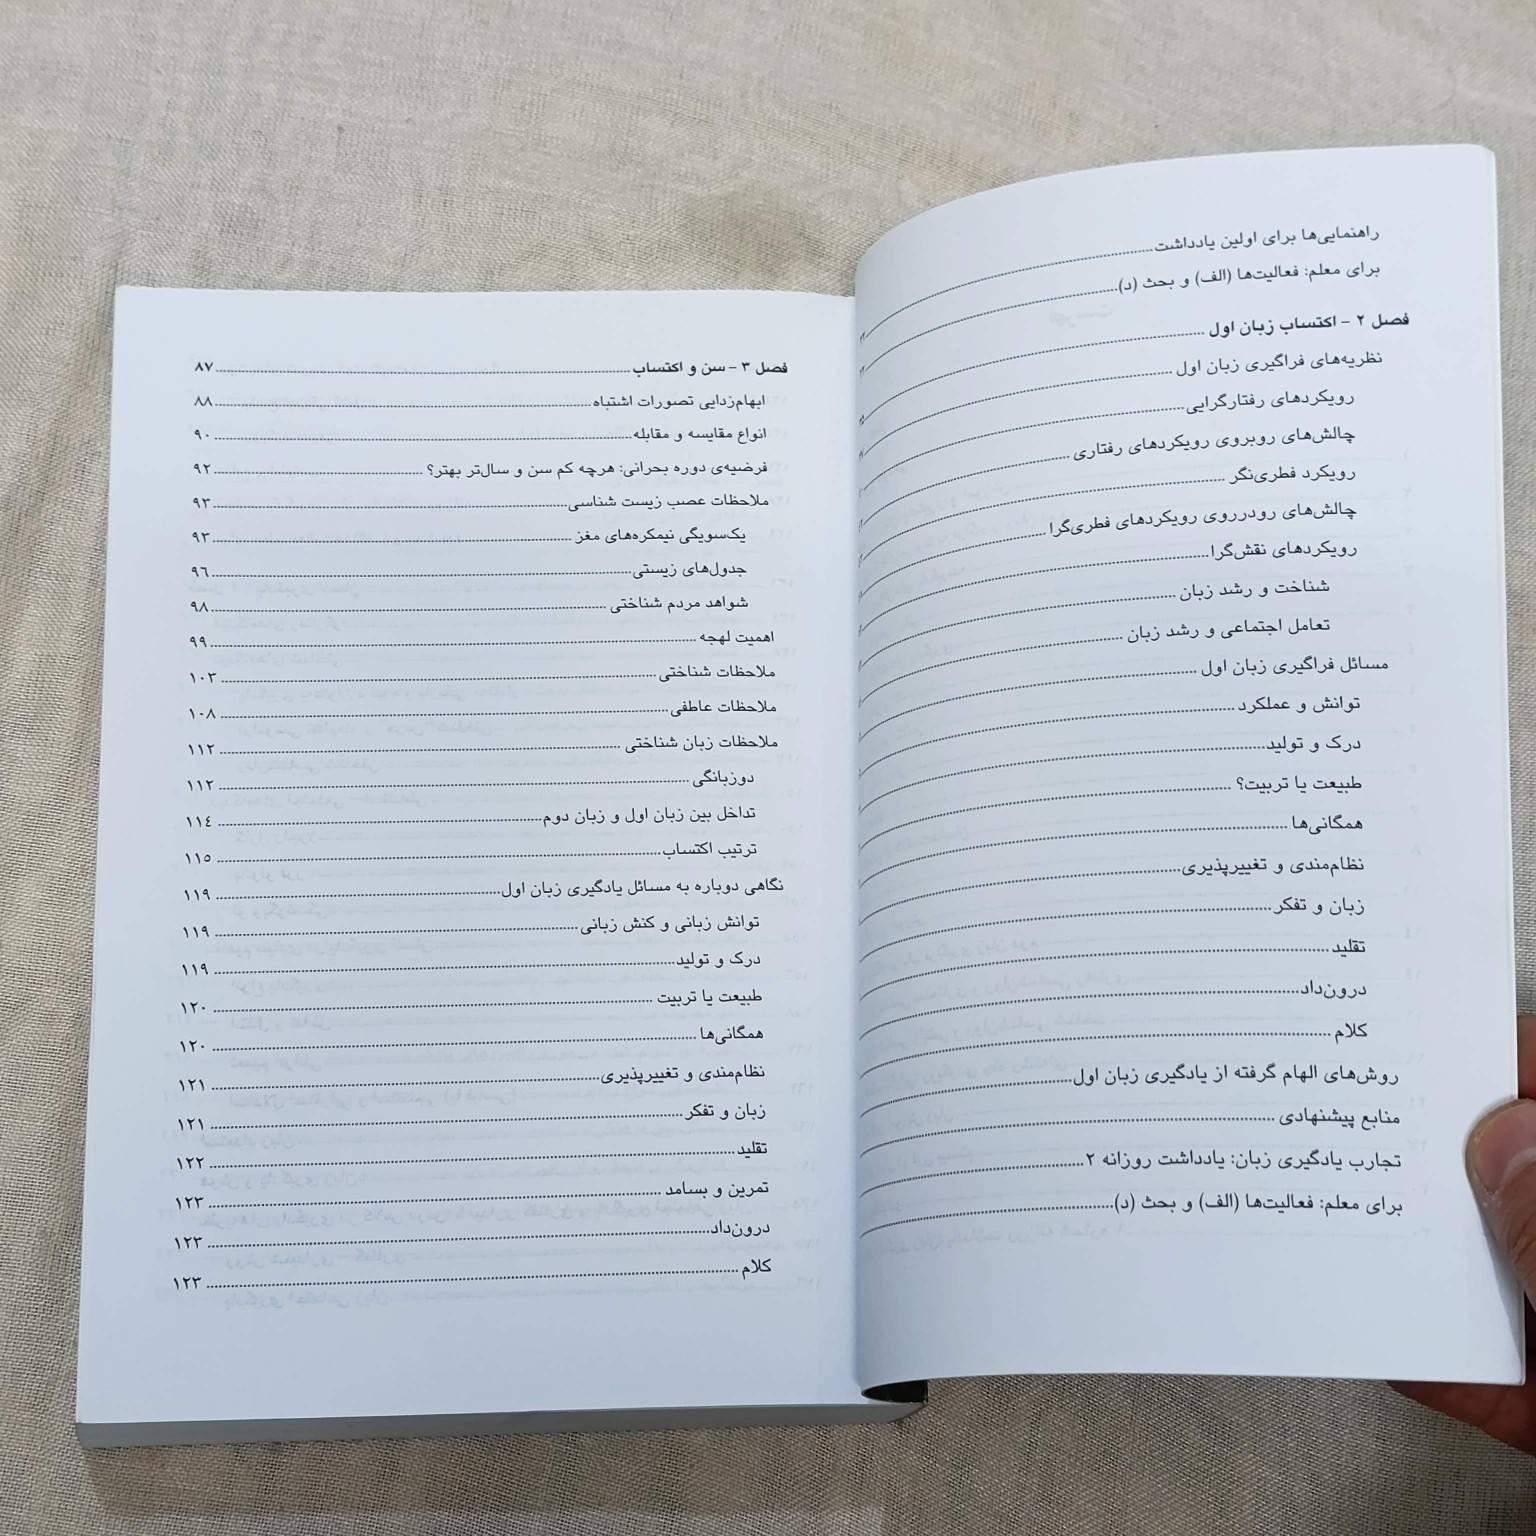 راهنمایی‌ها برای اولین یادداشت
برای معلم: فعالیت‌ها (الف) و بحث (د)
فصل ۲ - اکتساب زبان اول
نظریه‌های فراگیری زبان اول
رویکردهای رفتارگرایی
چالش‌های روبروی رویکردهای رفتاری
رویکرد فطری‌نگر
چالش‌های رودرروی رویکردهای فطری‌گرا
رویکردهای نقش‌گرا
شناخت و رشد زبان
تعامل اجتماعی و رشد زبان
مسائل فراگیری زبان اول
توانش و عملکرد
درک و تولید
طبیعت یا تربیت؟
همگانی‌ها
نظام‌مندی و تغییرپذیری
زبان و تفکر
تقلید
درون‌داد
کلام
روش‌های الهام گرفته از یادگیری زبان اول
منابع پیشنهادی
تجارب یادگیری زبان: یادداشت روزانه ۲
برای معلم: فعالیت‌ها (الف) و بحث (د)
فصل ۳ - سن و اکتساب ۸۷
ابهام‌زدایی تصورات اشتباه ۸۸
انواع مقایسه و مقابله ۹۰
فرضیه‌ی دوره بحرانی: هرچه کم سن و سال‌تر بهتر؟ ۹۲
ملاحظات عصب زیست شناسی ۹۳
یک‌سویگی نیمکره‌های مغز ۹۳
جدول‌های زیستی ۹٦
شواهد مردم شناختی ۹۸
اهمیت لهجه ۹۹
ملاحظات شناختی ۱۰۳
ملاحظات عاطفی ۱۰۸
ملاحظات زبان شناختی ۱۱۲
دوزبانگی ۱۱۲
تداخل بین زبان اول و زبان دوم ۱۱٤
ترتیب اکتساب ۱۱۵
نگاهی دوباره به مسائل یادگیری زبان اول ۱۱۹
توانش زبانی و کنش زبانی ۱۱۹
درک و تولید ۱۱۹
طبیعت یا تربیت ۱۲۰
همگانی‌ها ۱۲۰
نظام‌مندی و تغییرپذیری ۱۲۱
زبان و تفکر ۱۲۱
تقلید ۱۲۲
تمرین و بسامد ۱۲۳
درون‌داد ۱۲۳
کلام ۱۲۳